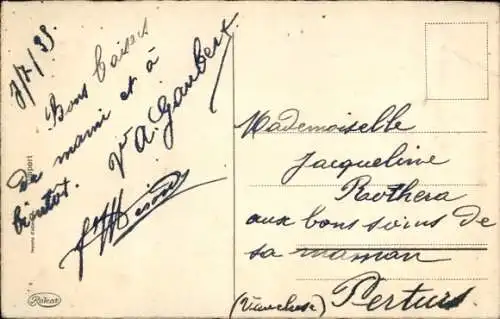 7/7/35
Bons baisers
de mami et à
bientôt.
Vve A. Gaubert
Mademoiselle
Jacqueline
Rothera
aux bons soins de
sa maman
(Vaucluse) Pertuis